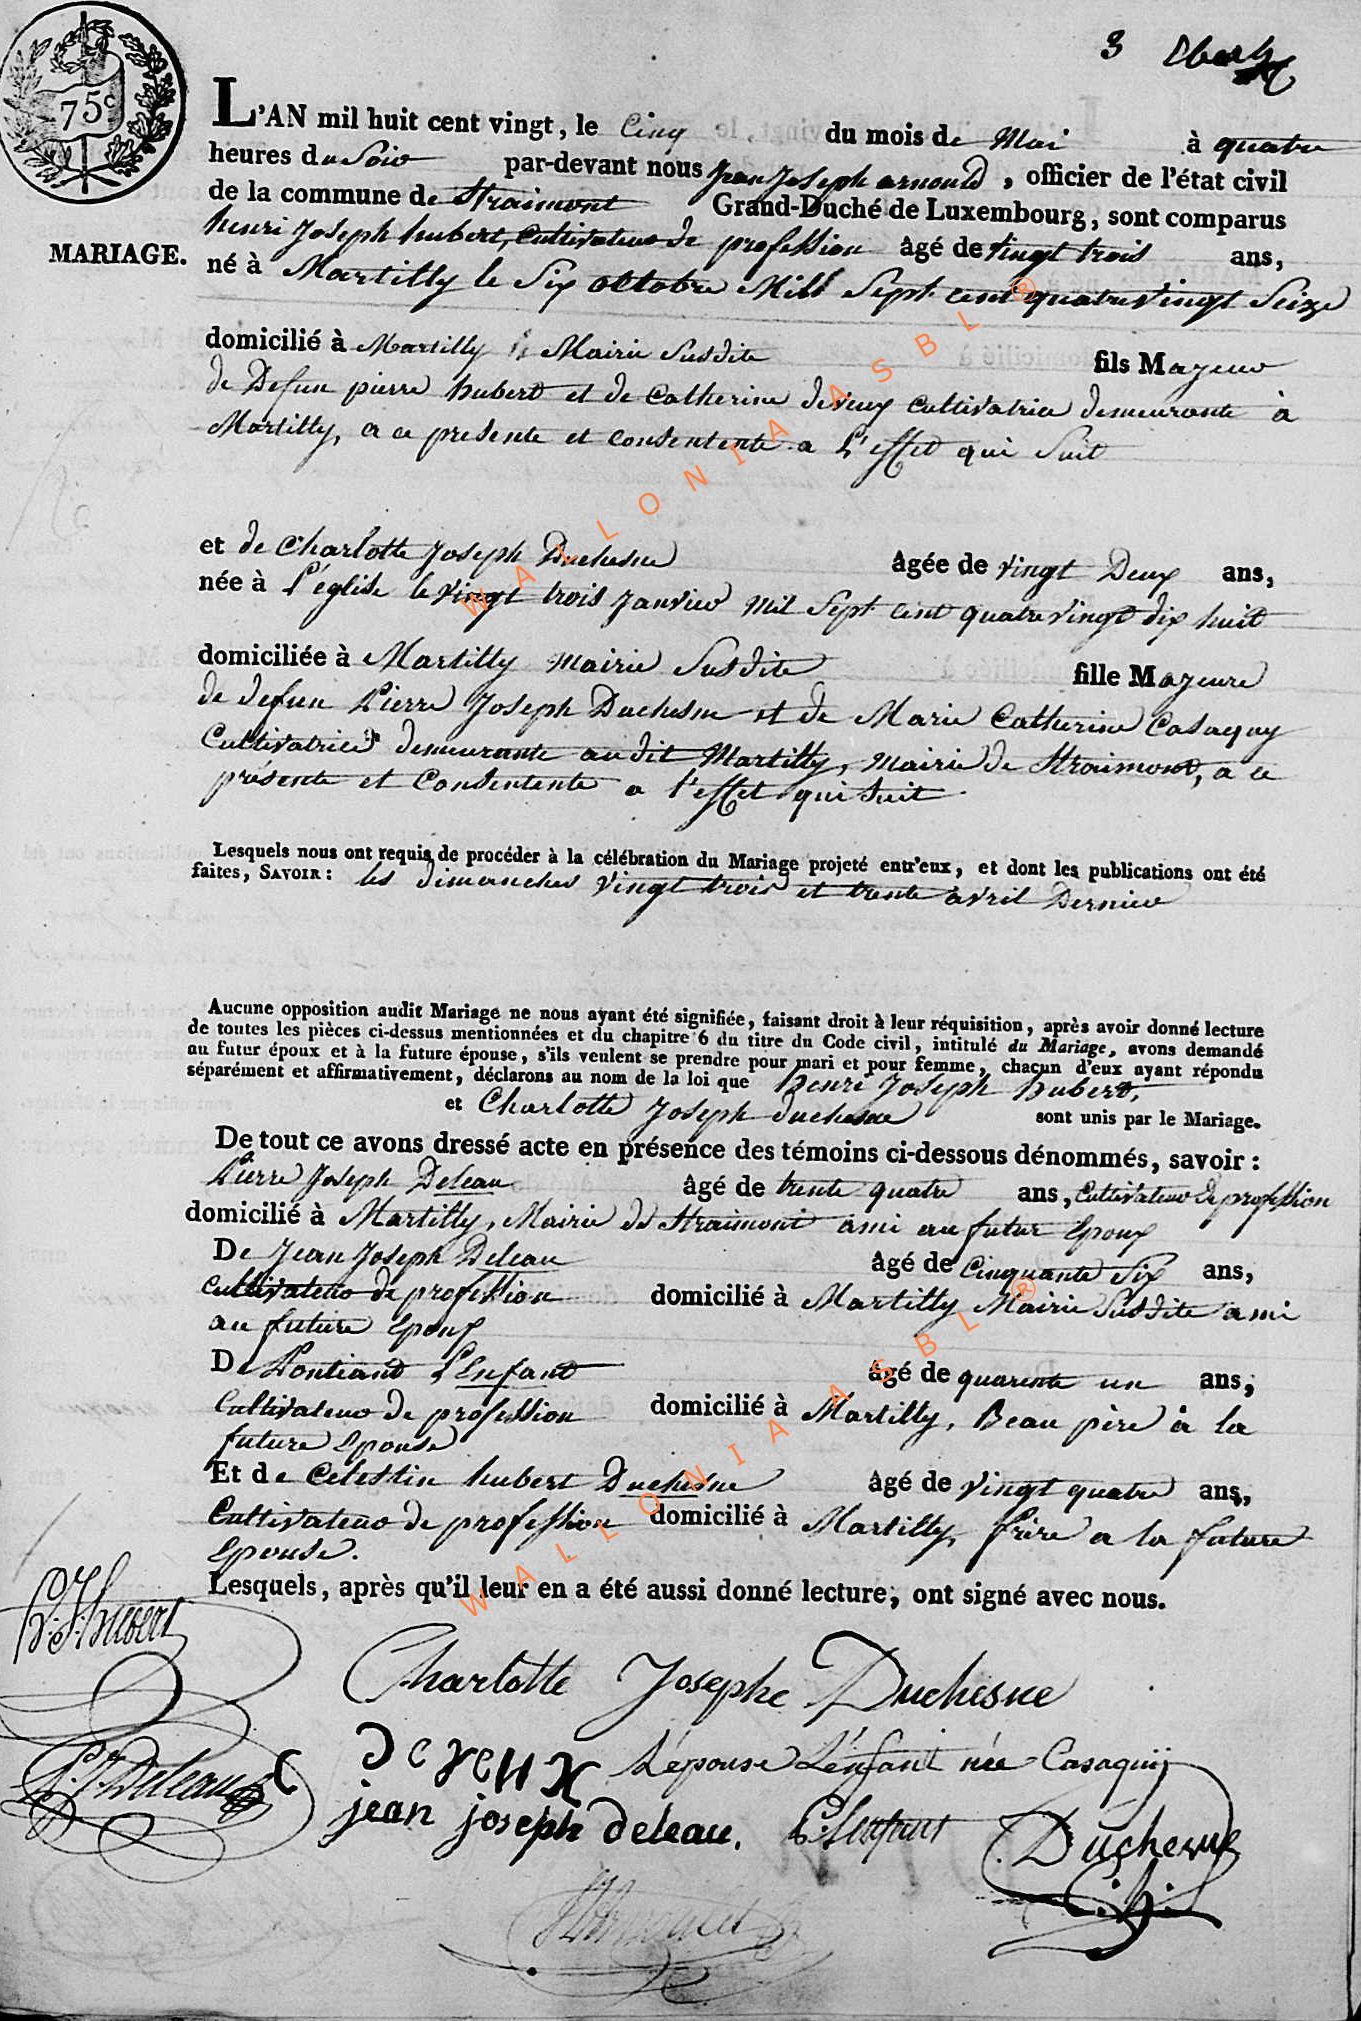 3
75c
L'AN mil huit cent vingt, le Cinq du mois de Mai à quatre
heures du Soir par-devant nous Jean Joseph arnould, officier de l'état civil
de la commune de Straimont Grand-Duché de Luxembourg, sont comparus
MARIAGE.
henri Joseph hubert, Cultivateur de profession âgé de vingt trois ans,
né à Martilly le Six octobre Mill Sept cent quatrevingt Seize
domicilié à Martilly Mairie Susdite fils Majeur
de Defun pierre hubert et de Catherine deveux cultivatrice demeurante à
Martilly, a ce presente et consentente a L'effet qui Suit
et de Charlotte Joseph Duchesne âgée de vingt Deux ans,
née à L'église le vingt trois Janvier mil Sept cent quatrevingt dix huit
domiciliée à Martilly mairie Susdite fille Majeure
de defun Pierre Joseph Duchesne et de Marie Catherine Casaquy
Cultivatrice demeurante audit Martilly, mairie de Straimont, a ce
présente et Consentente a l'effet qui Suit.
Lesquels nous ont requis de procéder à la célébration du Mariage projeté entr'eux, et dont les publications ont été
faites, SAVOIR : les dimanches vingt trois et trente avril Dernier
Aucune opposition audit Mariage ne nous ayant été signifiée, faisant droit à leur réquisition, après avoir donné lecture
de toutes les pièces ci-dessus mentionnées et du chapitre 6 du titre du Code civil, intitulé du Mariage, avons demandé
au futur époux et à la future épouse, s'ils veulent se prendre pour mari et pour femme, chacun d'eux ayant répondu
séparément et affirmativement, déclarons au nom de la loi que Henri Joseph hubert,
et Charlotte Joseph duchesne sont unis par le Mariage.
De tout ce avons dressé acte en présence des témoins ci-dessous dénommés, savoir :
Pierre Joseph Deleau âgé de trente quatre ans, Cultivateur de profession
domicilié à Martilly, Mairie de Straimont ami au futur Epoux
De Jean Joseph Deleau âgé de Cinquante Six ans,
cultivateur de profession domicilié à Martilly Mairie Susdite ami
au future Epoux
De Pontiand L'Enfant âgé de quarente un ans,
Cultivateur de profession domicilié à Martilly, Beau père à la
future Epouse
Et de Celestin hubert Duchesne âgé de vingt quatre ans,
Cultivateur de profession domicilié à Martilly, frère a la future
Epouse.
Lesquels, après qu'il leur en a été aussi donné lecture, ont signé avec nous.
h:J:hubert
Charlotte Josephe Duchesne
P:J:Deleau
deveux L'épouse L'énfant née Casaquÿ
jean joseph deleau. P:Lenfant Duchesne
C:h:
WALLONIA ASBL ®
WALLONIA ASBL ®